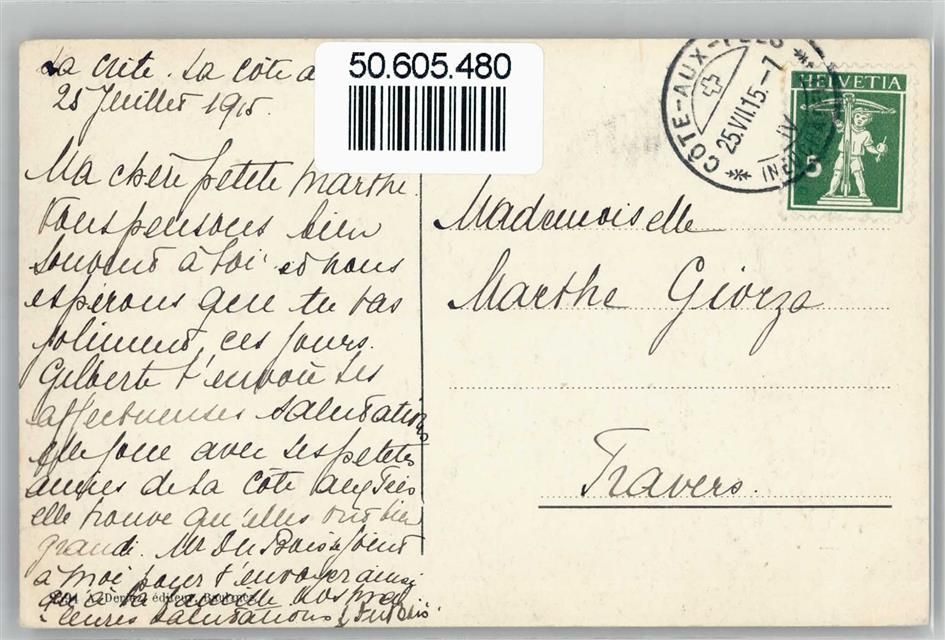 La crête. La côte a
25 Juillet 1915.
Ma chère petite Marthe.
Nous pensons bien
souvent à toi et nous
espérons que tu vas
joliment, ces jours.
Gilberte t'envoie ses
affectueuses salutations
elle joue avec ses petites
amies de la Côte aux Fées
elle trouve qu'elles ont bien
grandi. Mr DuBois se joint
à moi pour t'envoyer ainsi
qu'à ta famille nos meil
leures salutations L. DuBois
éditeur,
50.605.480
CÔTE-AUX-FÉES
25.VII.15.-7
IV
HELVETIA
5
Mademoiselle
Marthe Giorza
Travers.